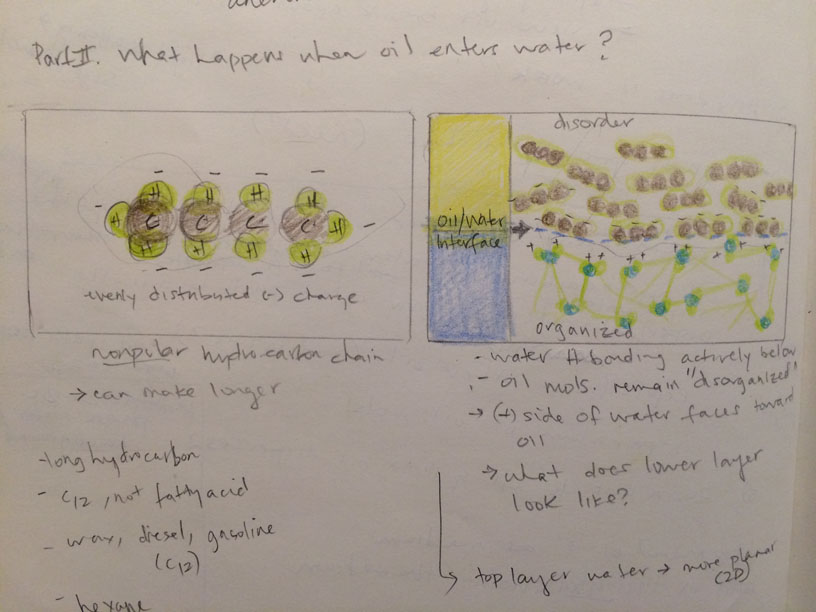 Part II. What happens when oil enters water?
H H H H
H C C C C H
H H H H
evenly distributed (-) charge
nonpolar hydrocarbon chain
→ can make longer
- long hydrocarbon
- C12, not fatty acid
- wax, diesel, gasoline
(C12)
- hexane
disorder
oil/water
Interface
organized
- water H bonding actively below
- oil mols. remain "disorganized"
→ (+) side of water faces toward
oil
→ what does lower layer
look like?
top layer water → more planar
(2D)